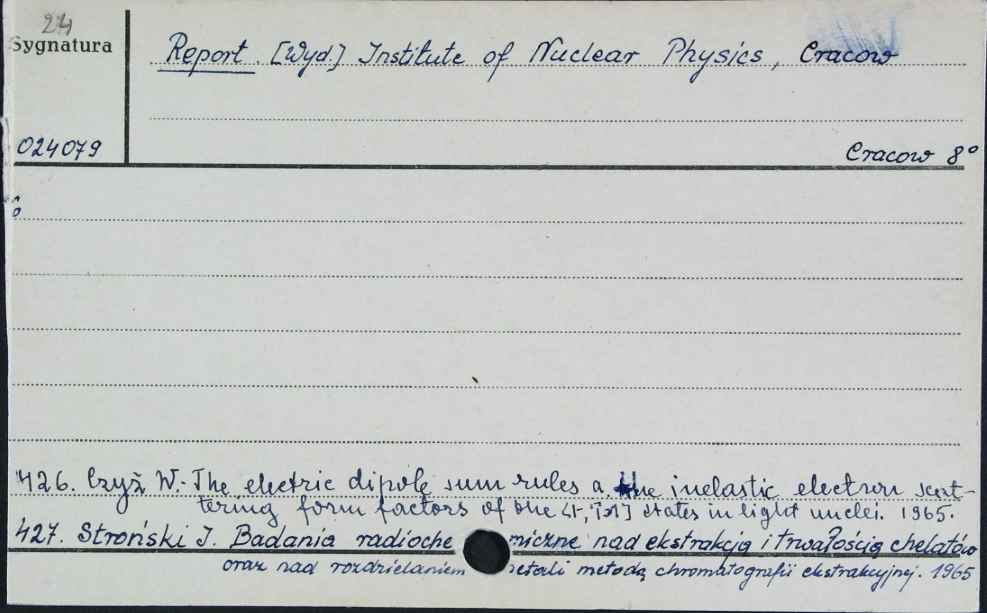 24
Sygnatura
Report. [Wyd.] Institute of Nuclear Physics, Cracow
024079
Cracow 8°
426. Czyż W.- The electric dipole sum rules a. the inelastic electron scat-
tering form factors of the states in light nuclei. 1965.
427. Stroński J. Badania radioche miczne nad ekstrakcją i trwałością chelatów
oraz nad rozdzielaniem metali metodą chromatografii ekstrakcyjnej. 1965